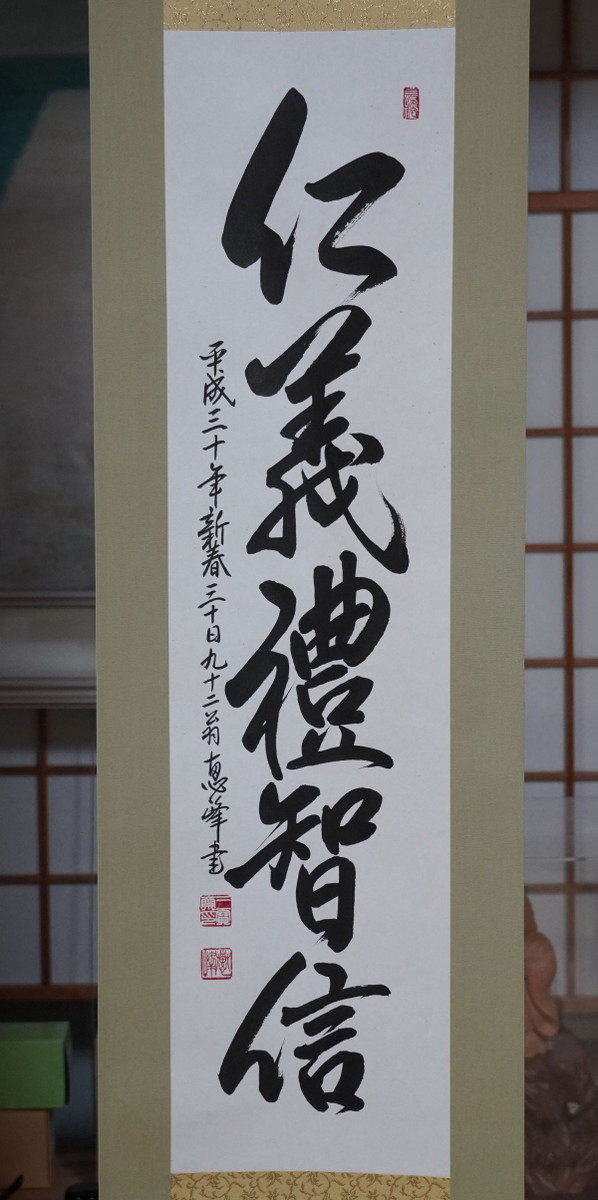 仁義禮智信
平成三十年新春三十日九十二翁恵峰書